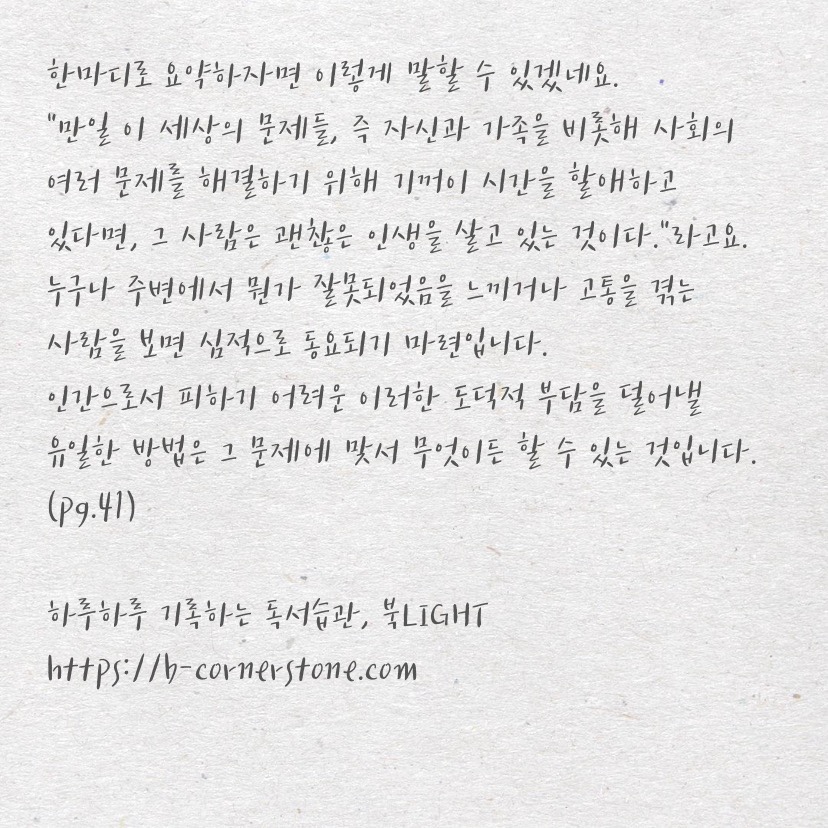 한마디로 요약하자면 이렇게 말할 수 있겠네요.
"만일 이 세상의 문제들, 즉 자신과 가족을 비롯해 사회의
여러 문제를 해결하기 위해 기꺼이 시간을 할애하고
있다면, 그 사람은 괜찮은 인생을 살고 있는 것이다."라고요.
누구나 주변에서 뭔가 잘못되었음을 느끼거나 고통을 겪는
사람을 보면 심적으로 동요되기 마련입니다.
인간으로서 피하기 어려운 이러한 도덕적 부담을 덜어낼
유일한 방법은 그 문제에 맞서 무엇이든 할 수 있는 것입니다.
(pg.41)
하루하루 기록하는 독서습관, 북LIGHT
https://b-cornerstone.com